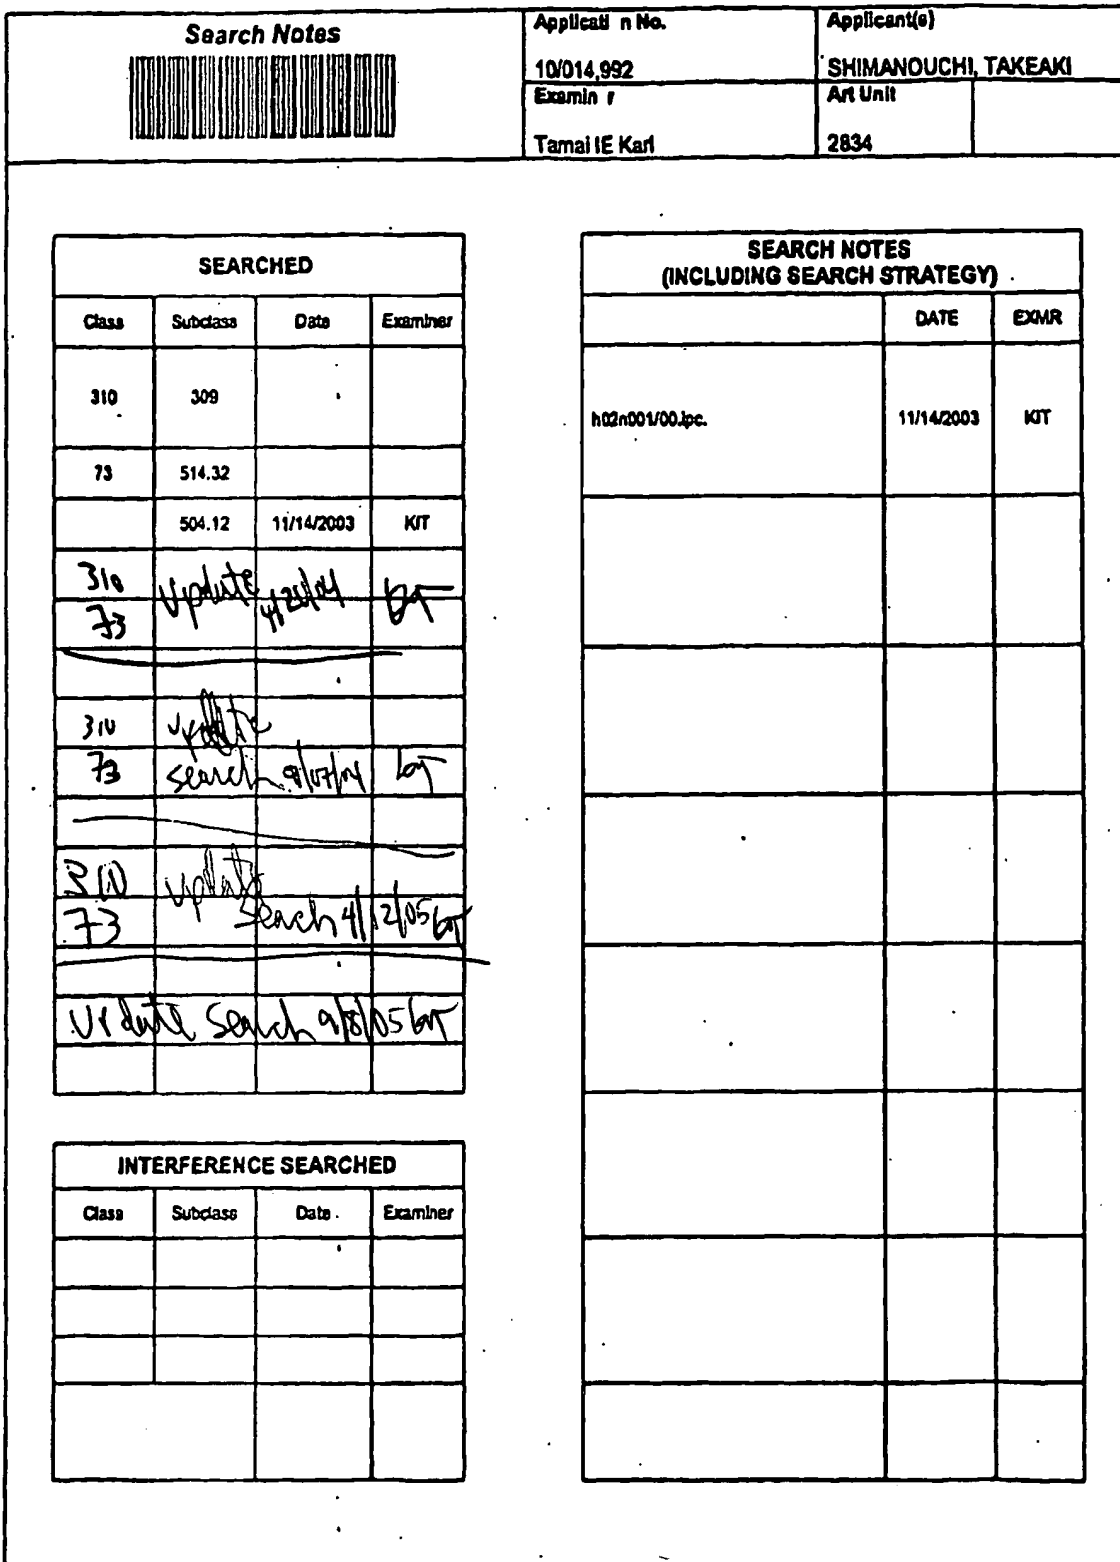 Search Notes
Applicati n No.
Applicant(s)
10/014,992
SHIMANOUCHI, TAKEAKI
Examin r
Art Unit
Tamai IE Karl
2834
SEARCHED
Class Subclass Date Examiner
310 309
73 514.32
504.12 11/14/2003 KIT
310 update
73
310 update
73 search 9/07/04
310 update
73 search 4/12/05
update search 9/8/05
INTERFERENCE SEARCHED
Class Subclass Date Examiner
SEARCH NOTES
(INCLUDING SEARCH STRATEGY)
DATE EXMR
h02n001/00.ipc. 11/14/2003 KIT